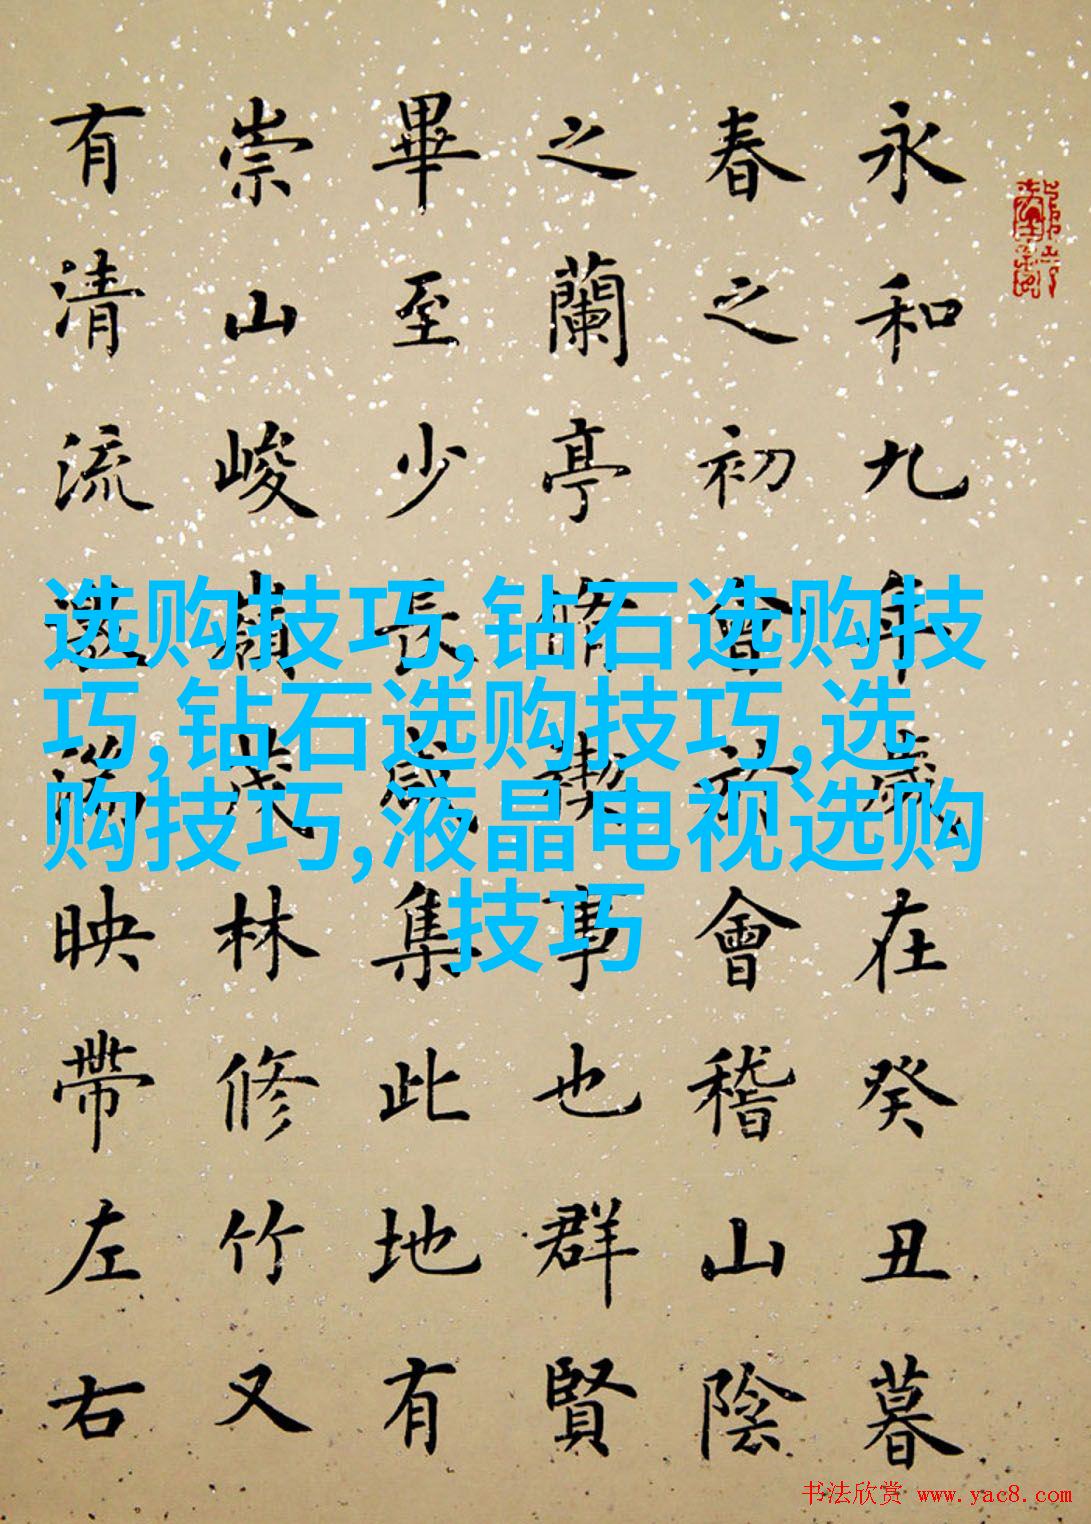 永和九年歲在癸丑暮
春之初會於會稽山陰
之蘭亭脩禊事也群賢
畢至少長咸集此地有
崇山峻嶺茂林修竹又
有清流激湍映帶左右
选购技巧,钻石选购技
巧,钻石选购技巧,选
购技巧,液晶电视选购
技巧
书法欣赏 www.yac8.com